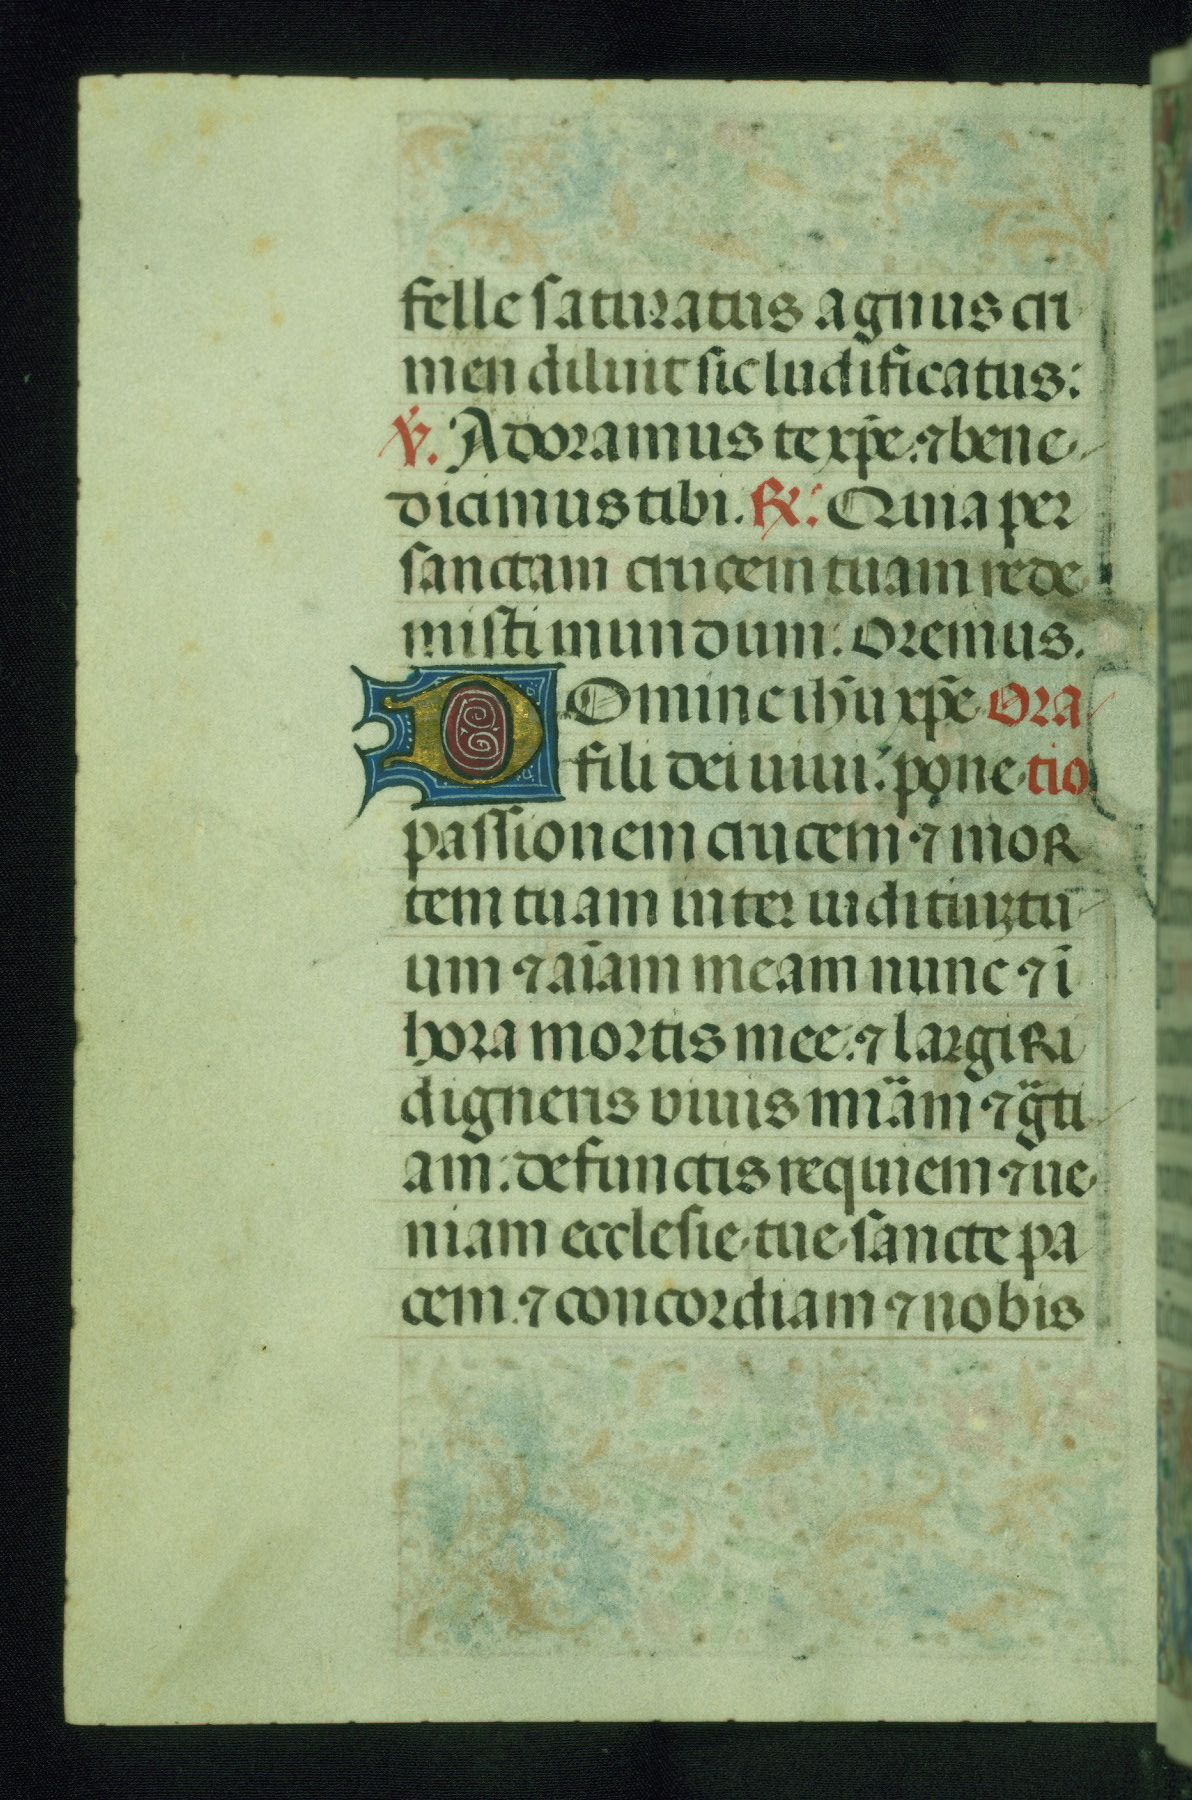 felle saturatus agnus cri
men diluit sic ludificatus:
℣. Adoramus te xp̄e. ⁊ bene
dicimus tibi. ℟: Quia per
sanctam crucem tuam rede
misti mundum: Oremus.
DOmine ih̄u xp̄e Ora
fili dei uiui: pone tio
passionem crucem ⁊ mor
tem tuam inter iudiciuꝫ tu
um ⁊ aīam meam nunc ⁊ ī
hora mortis mee. ⁊ largiri
digneris viuis miām ⁊ gr̄ti
am: defunctis requiem ⁊ ue
niam ecclesie tue sancte pa
cem. ⁊ concordiam ⁊ nobis